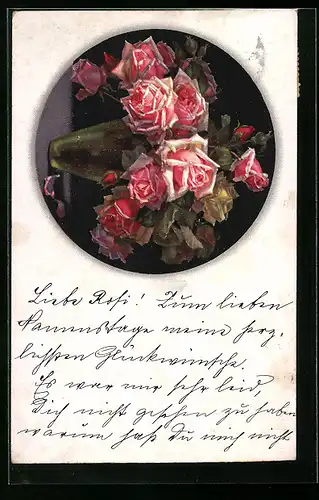 Liebe Rosi! Zum lieben
Namenstage meine herz-
lichsten Glückwünsche.
Es war mir sehr leid,
Dich nicht gesehen zu haben
warum hast Du mich nicht